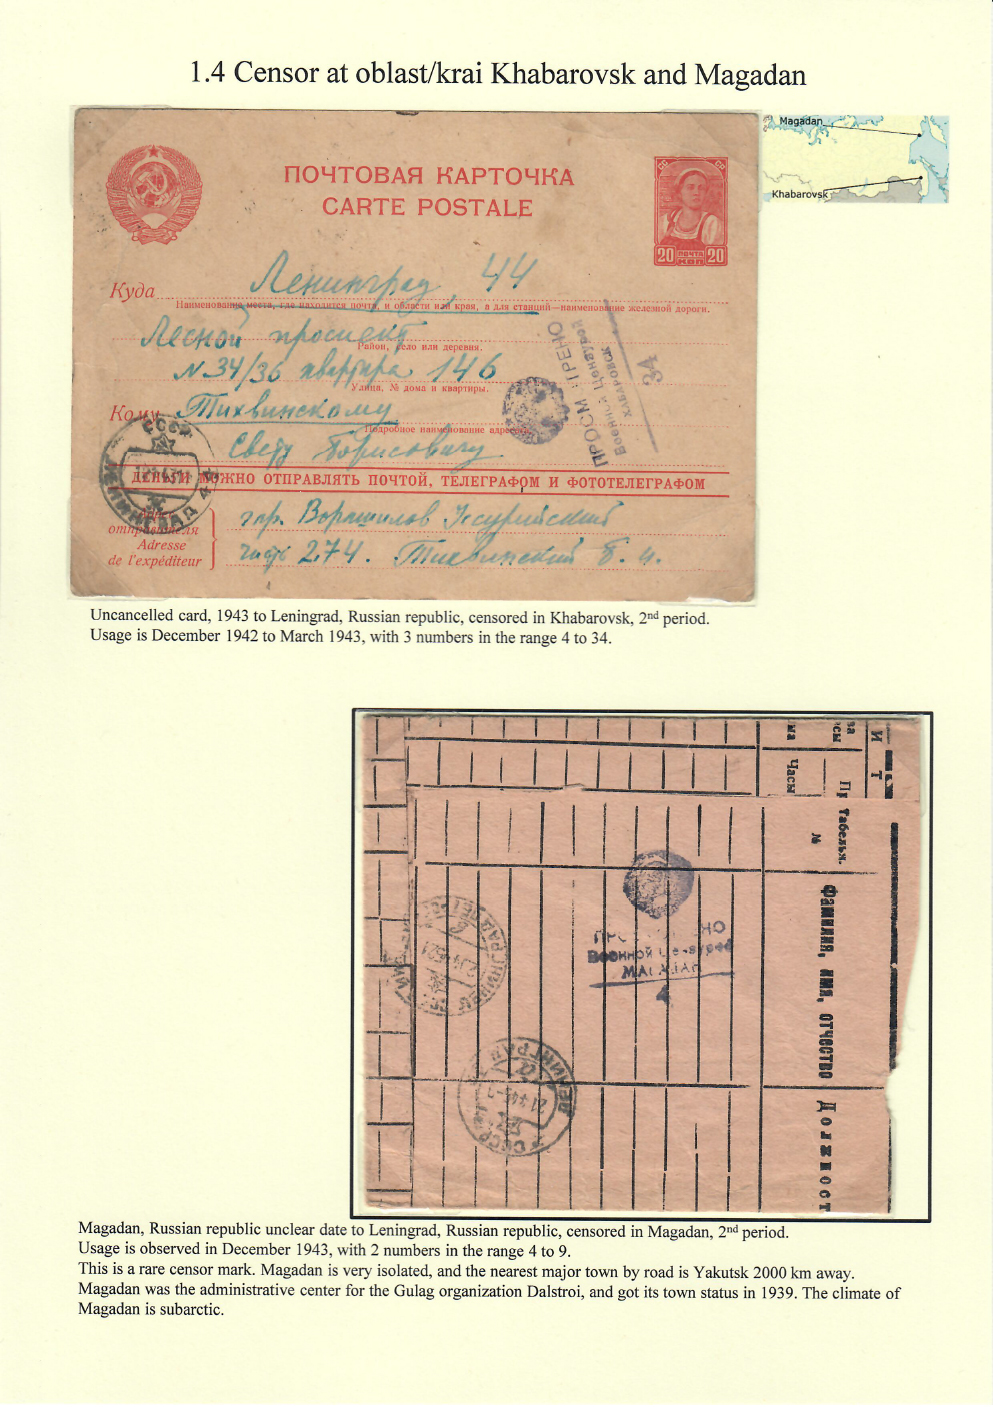 1.4 Censor at oblast/krai Khabarovsk and Magadan
Magadan
Khabarovsk
ПОЧТОВАЯ КАРТОЧКА
CARTE POSTALE
20 ПОЧТА 20
КОП
Куда Ленинград, 44
Наименование места, где находится почта, и области или края, а для станций—наименование железной дороги.
Лесной проспект
Район, село или деревня.
№34/36 квартира 146
Улица, № дома и квартиры.
Кому Тихвинскому
Подробное наименование адресата
Свету Борисовичу
ПРОСМОТРЕНО
Военной Цензурой
ХАБАРОВСК
34
СССР
ЛЕНИНГРАД
ДЕНЬГИ МОЖНО ОТПРАВЛЯТЬ ПОЧТОЙ, ТЕЛЕГРАФОМ И ФОТОТЕЛЕГРАФОМ
Адрес отправителя
Adresse
de l'expéditeur
гор. Ворошилов Уссурийский
часть 274. Тихвинский Б. И.
Uncancelled card, 1943 to Leningrad, Russian republic, censored in Khabarovsk, 2nd period.
Usage is December 1942 to March 1943, with 3 numbers in the range 4 to 34.
Часы
Табельн.
№
Фамилия, имя, отчество
Должност
Военной Цензурой
МАГАДАН
4
ЛЕНИНГРАД
СССР
Magadan, Russian republic unclear date to Leningrad, Russian republic, censored in Magadan, 2nd period.
Usage is observed in December 1943, with 2 numbers in the range 4 to 9.
This is a rare censor mark. Magadan is very isolated, and the nearest major town by road is Yakutsk 2000 km away.
Magadan was the administrative center for the Gulag organization Dalstroi, and got its town status in 1939. The climate of
Magadan is subarctic.